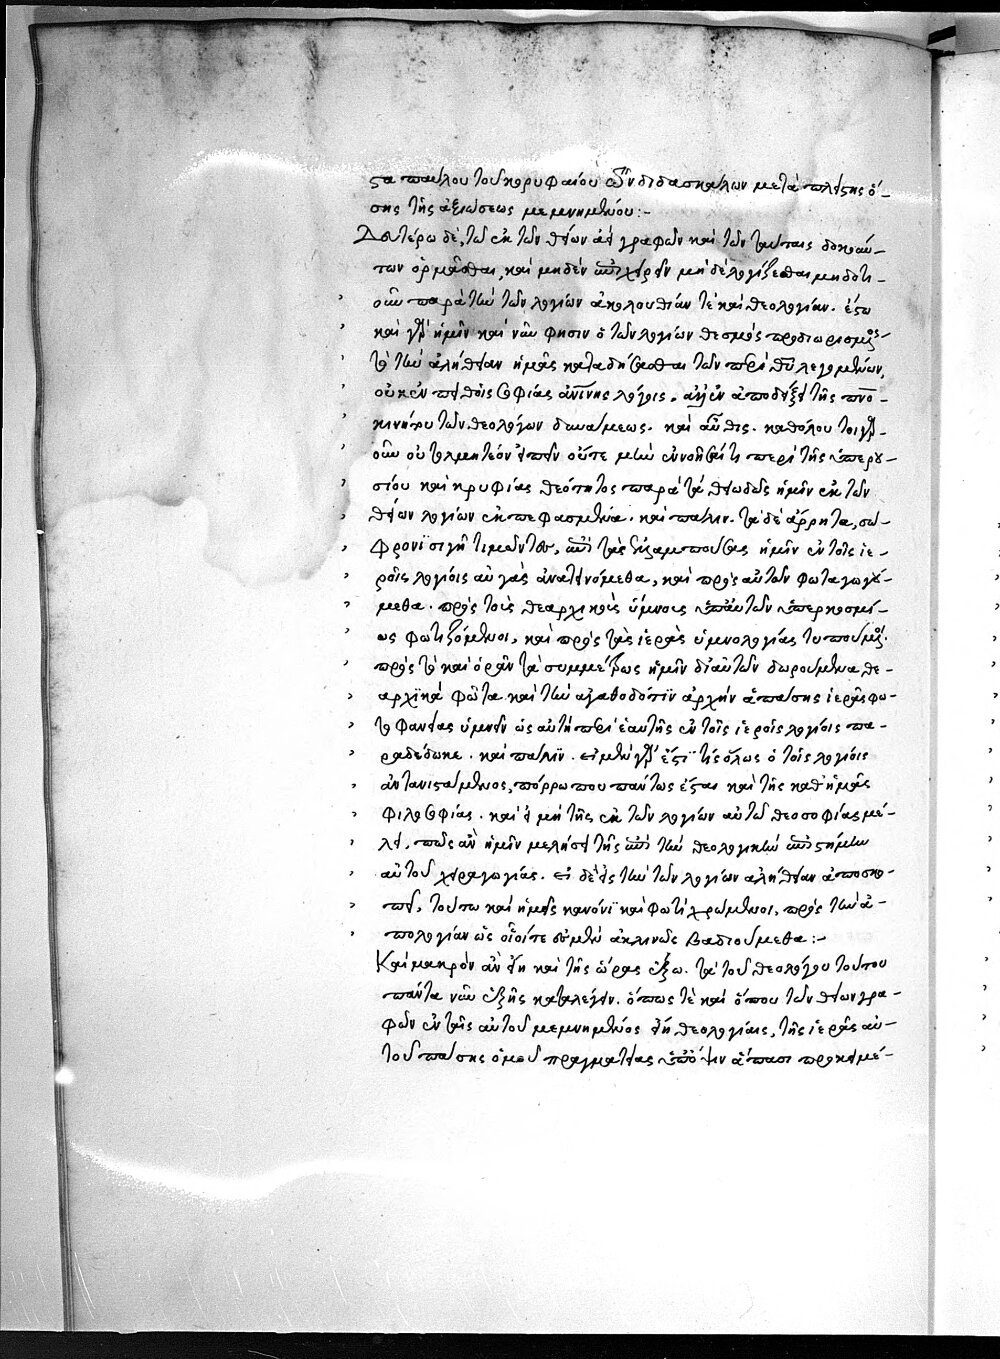 στα παύλου τοῦ κορυφαίου τῶν διδασκάλων μετὰ πλείστης ὅ-
σης τῆς ἀξιώσεως μεμνημένου:-
Δευτέρω δὲ, τῶ ἐκ τῶν θείων ἀεὶ γραφῶν καὶ τῶν ταύταις δοκούν-
των ὁρμᾶσθαι, καὶ μηδὲν ἐπιχειρεῖν μὴ δὲ λογίζεσθαι μηδοτι-
οῦν παρὰ τὴν τῶν λογίων ἀκολουθίαν τὲ καὶ θεολογίαν. ἔστω
καὶ γὰρ ἡμῖν καὶ νῦν φησιν ὁ τῶν λογίων θεσμὸς προδιωρισμένος
τὸ τὴν ἀλήθειαν ἡμᾶς καταδήσασθαι τῶν περὶ θεοῦ λεγομένων,
οὐκ ἐν πειθοῖς σοφίας ἀνίνης λόγοις. ἀλλ' ἐν ἀποδείξει τῆς πνο-
κινήτου τῶν θεολόγων δυνάμεως. καὶ αὖθις. καθόλου τοιγαρ-
οῦν οὐ τολμητέον εἰπεῖν οὔτε μὴν ἐννοῆσαί τι περὶ τῆς ὑπερου-
σίου καὶ κρυφίας θεότητος παρὰ τὰ θειωδῶς ἡμῖν ἐκ τῶν
θείων λογίων ἐκπεφασμένα. καὶ πάλιν. τὰ δὲ ἄρρητα, σώ-
φρονι σιγῆ τιμῶντες, ἐπὶ τὰς ἐλλαμπούσας ἡμῖν ἐν τοῖς ἱε-
ροῖς λογίοις αὐγὰς ἀνατεινόμεθα, καὶ πρὸς αὐτῶν φωταγωγού-
μεθα. πρὸς τοὺς θεαρχικοὺς ὕμνους ὑπ' αὐτῶν ὑπερκοσμί-
ως φωτιζόμενοι, καὶ πρὸς τὰς ἱερὰς ὑμνολογίας τυπούμενοι.
πρὸς τὸ καὶ ὁρᾶν τὰ συμμέτρως ἡμῖν δι' αὐτῶν δωρούμενα θε-
αρχικὰ φῶτα καὶ τὴν ἀγαθοδότιν ἀρχὴν ἁπάσης ἱερᾶς φω-
τοφανείας ὑμνεῖν ὡς αὐτὴ περὶ ἑαυτῆς ἐν τοῖς ἱεροῖς λογίοις πα-
ραδέδωκε. καὶ πάλιν. εἰ μὲν γάρ ἐστί τις ὅλως ὁ τοῖς λογίοις
ἀντανιστάμενος, πόρρω που πάντως ἔσται καὶ τῆς καθ' ἡμᾶς
φιλοσοφίας. καὶ εἰ μὴ τῆς ἐκ τῶν λογίων αὐτῶ θεοσοφίας μέ-
λει, πῶς ἂν ἡμῖν μελήσει τῆς ἐπὶ τὴν θεολογικὴν ἐπιστήμην
αὐτοῦ χειραγωγίας. εἰ δὲ εἰς τὴν τῶν λογίων ἀλήθειαν ἀποσκο-
πεῖ, τούτω καὶ ἡμεῖς κανόνι καὶ φωτὶ χρώμενοι, πρὸς τὴν ἀ-
πολογίαν ὡς οἷοί τε ἐσμὲν ἀκλινῶς βαδιούμεθα:-
Καὶ μακρὸν ἂν εἴη καὶ τῆς ὥρας ἔξω. τὰ τοῦ θεολόγου τούτου
πάντα νῦν ἑξῆς καταλέγειν. ὅπως τὲ καὶ ὅπου τῶν θείων γρα-
φῶν ἐν ταῖς αὐτοῦ μεμνημένος εἴη θεολογίαις, τῆς ἱερᾶς αὐ-
τοῦ πάσης ὁμοῦ πραγματείας ὑπ' ὄψιν ἅπασι προκειμέ-